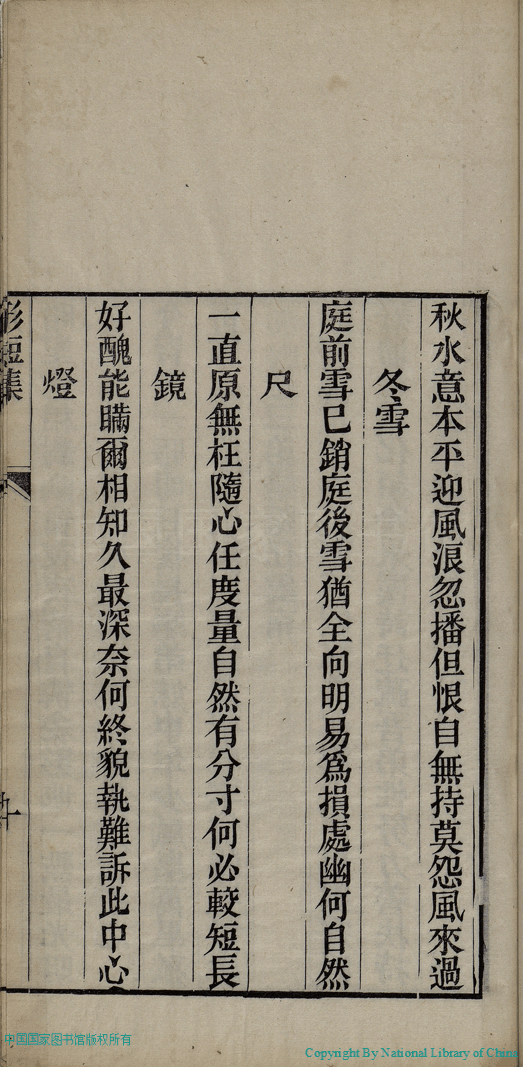 秋水意本平迎風浪忽播但恨自無持莫怨風來過
冬雪
庭前雪已銷庭後雪猶全向明易為損處幽何自然
尺
一直原無枉隨心任度量自然有分寸何必較短長
鏡
好醜能瞞爾相知久最深奈何終貌執難訴此中心
燈
短集
中国国家图书馆版权所有
Copyright By National Library of China